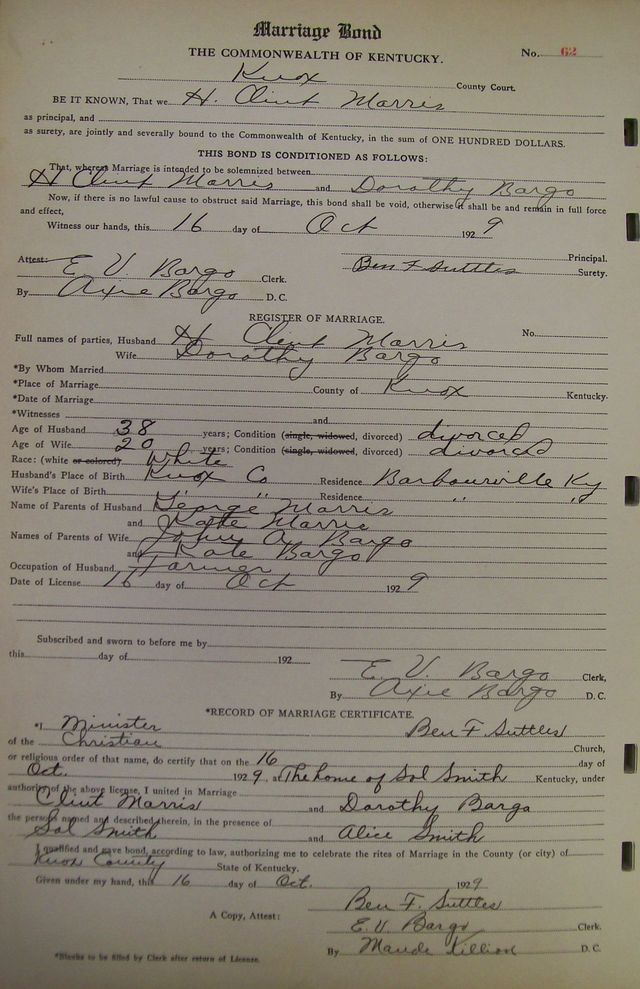 Marriage Bond
THE COMMONWEALTH OF KENTUCKY. No. 62
Knox County Court.
BE IT KNOWN, That we H. Clint Marris
as principal, and
as surety, are jointly and severally bound to the Commonwealth of Kentucky, in the sum of ONE HUNDRED DOLLARS.
THIS BOND IS CONDITIONED AS FOLLOWS:
That, whereas Marriage is intended to be solemnized between
H Clint Marris and Dorothy Bargo
Now, if there is no lawful cause to obstruct said Marriage, this bond shall be void, otherwise it shall be and remain in full force
and effect,
Witness our hands, this 16 day of Oct 1929
Principal.
Attest: E. V. Bargo Clerk. Ben F Suttles Surety.
By Axie Bargo D. C.
REGISTER OF MARRIAGE.
Full names of parties, Husband H Clint Marris No.
Wife Dorothy Bargo
*By Whom Married
*Place of Marriage County of Knox Kentucky.
*Date of Marriage
*Witnesses and
Age of Husband 38 years; Condition (single, widowed, divorced) divorced
Age of Wife 20 years; Condition (single, widowed, divorced) divorced
Race: (white or colored) White
Husband's Place of Birth Knox Co Residence Barbourville Ky
Wife's Place of Birth " " Residence " "
Name of Parents of Husband George Marris
and Kate Marris
Names of Parents of Wife Bargo
and Kate Bargo
Occupation of Husband Farmer
Date of License 16 day of Oct 1929
Subscribed and sworn to before me by
this day of 192
E. V. Bargo Clerk,
By Axie Bargo D. C.
*RECORD OF MARRIAGE CERTIFICATE.
*I Minister Ben F Suttles
of the Christian Church,
or religious order of that name, do certify that on the 16 day of
Oct. 1929, at The home of Sol Smith Kentucky, under
authority of the above license, I united in Marriage
Clint Marris and Dorothy Bargo
the persons named and described therein, in the presence of
Sol Smith and Alice Smith
I qualified and gave bond, according to law, authorizing me to celebrate the rites of Marriage in the County (or city) of
Knox County State of Kentucky.
Given under my hand, this 16 day of Oct. 1929
Ben F. Suttles
A Copy, Attest: E. V. Bargo Clerk.
By Maude Killion D. C.
*Blanks to be filled by Clerk after return of License.